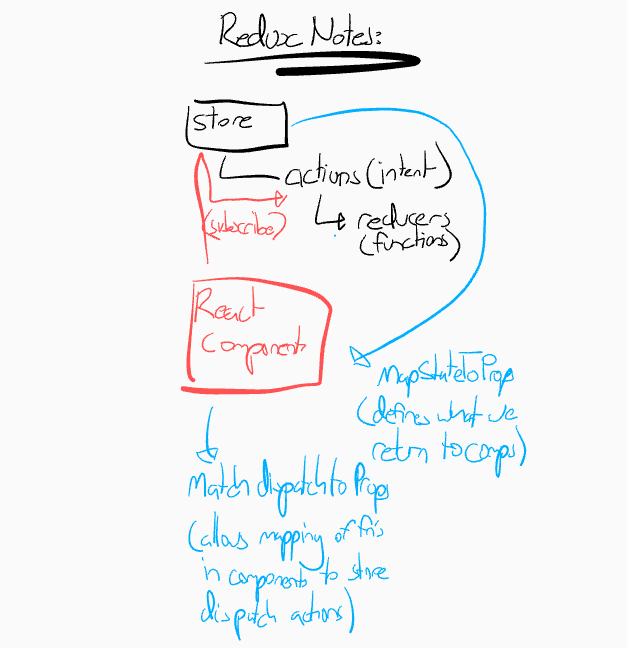 Redux Notes:
store
actions (intent)
(subscribe)
reducers
(functions)
React
Component
MapStateToProp
(defines what we
return to comps)
Match dispatch to Props
(allows mapping of fn's
in components to store
dispatch actions)